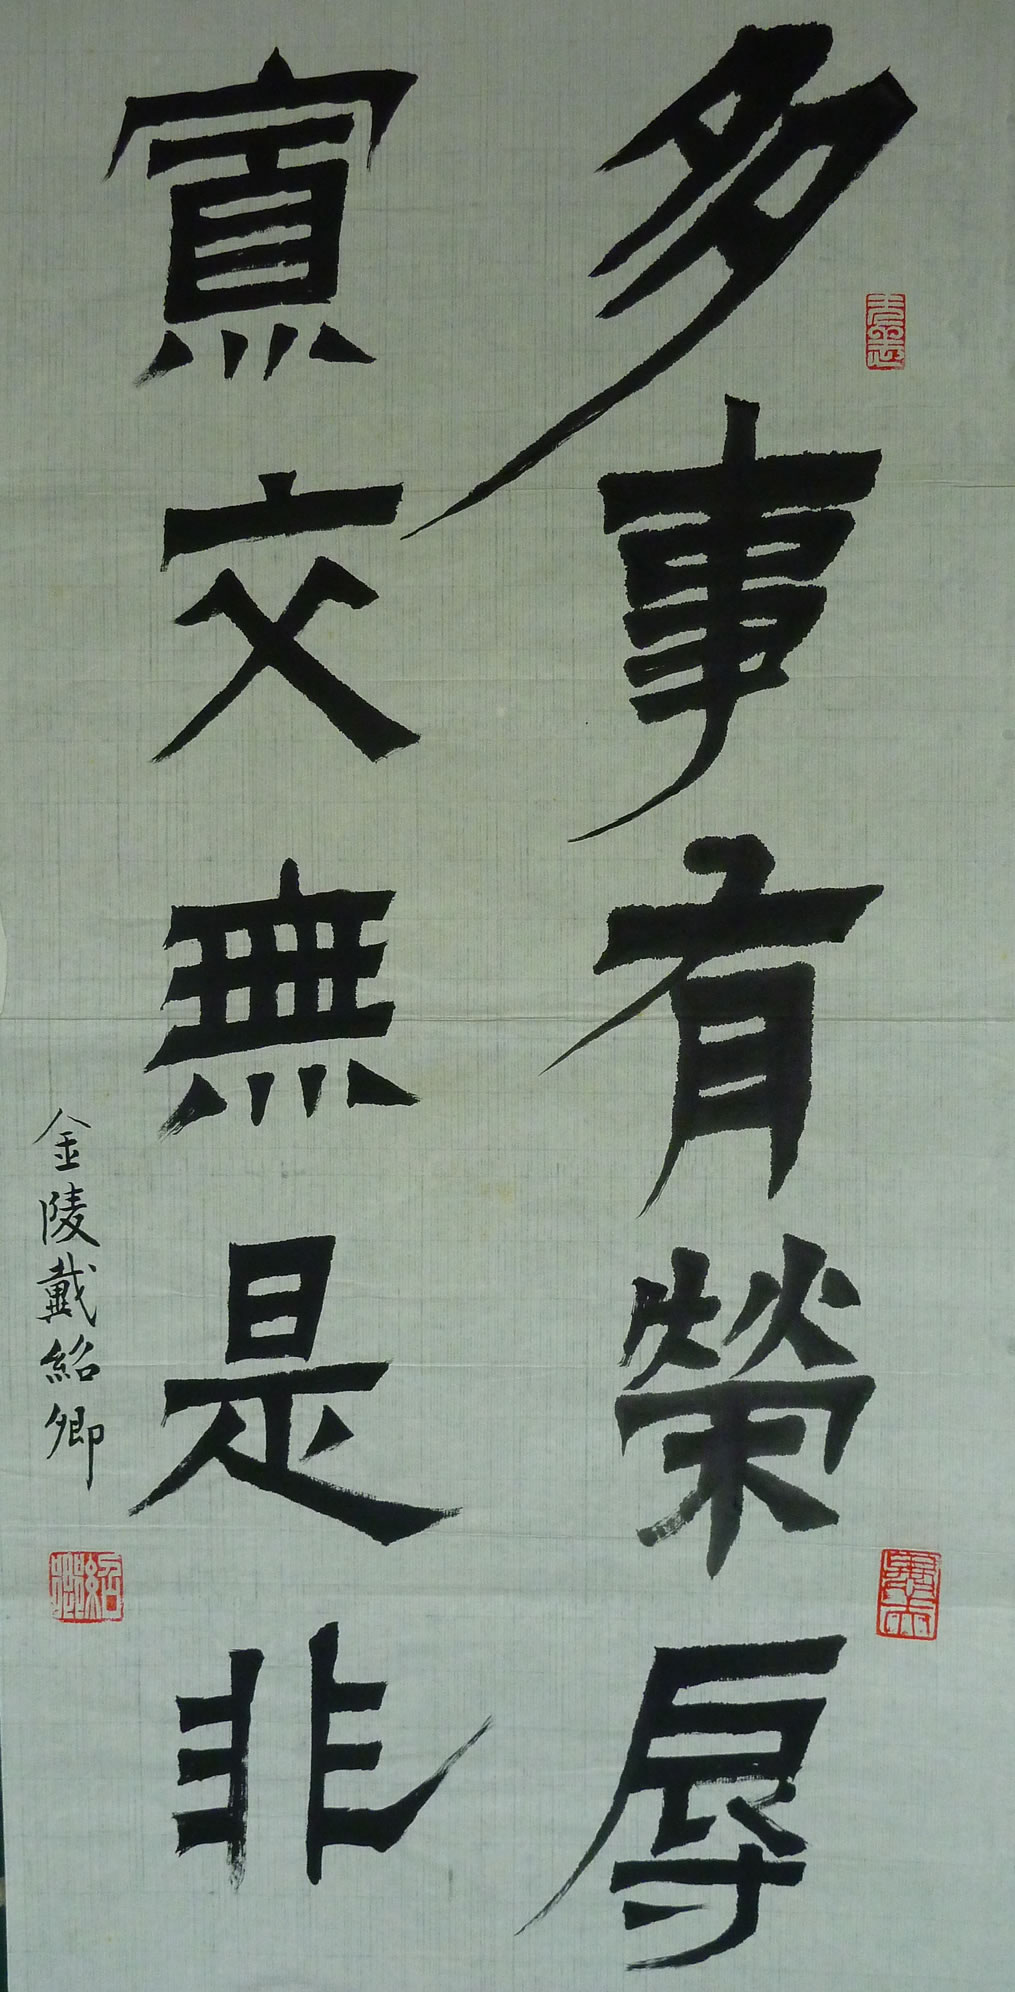 多事有榮辱
寡交無是非
金陵戴紹卿